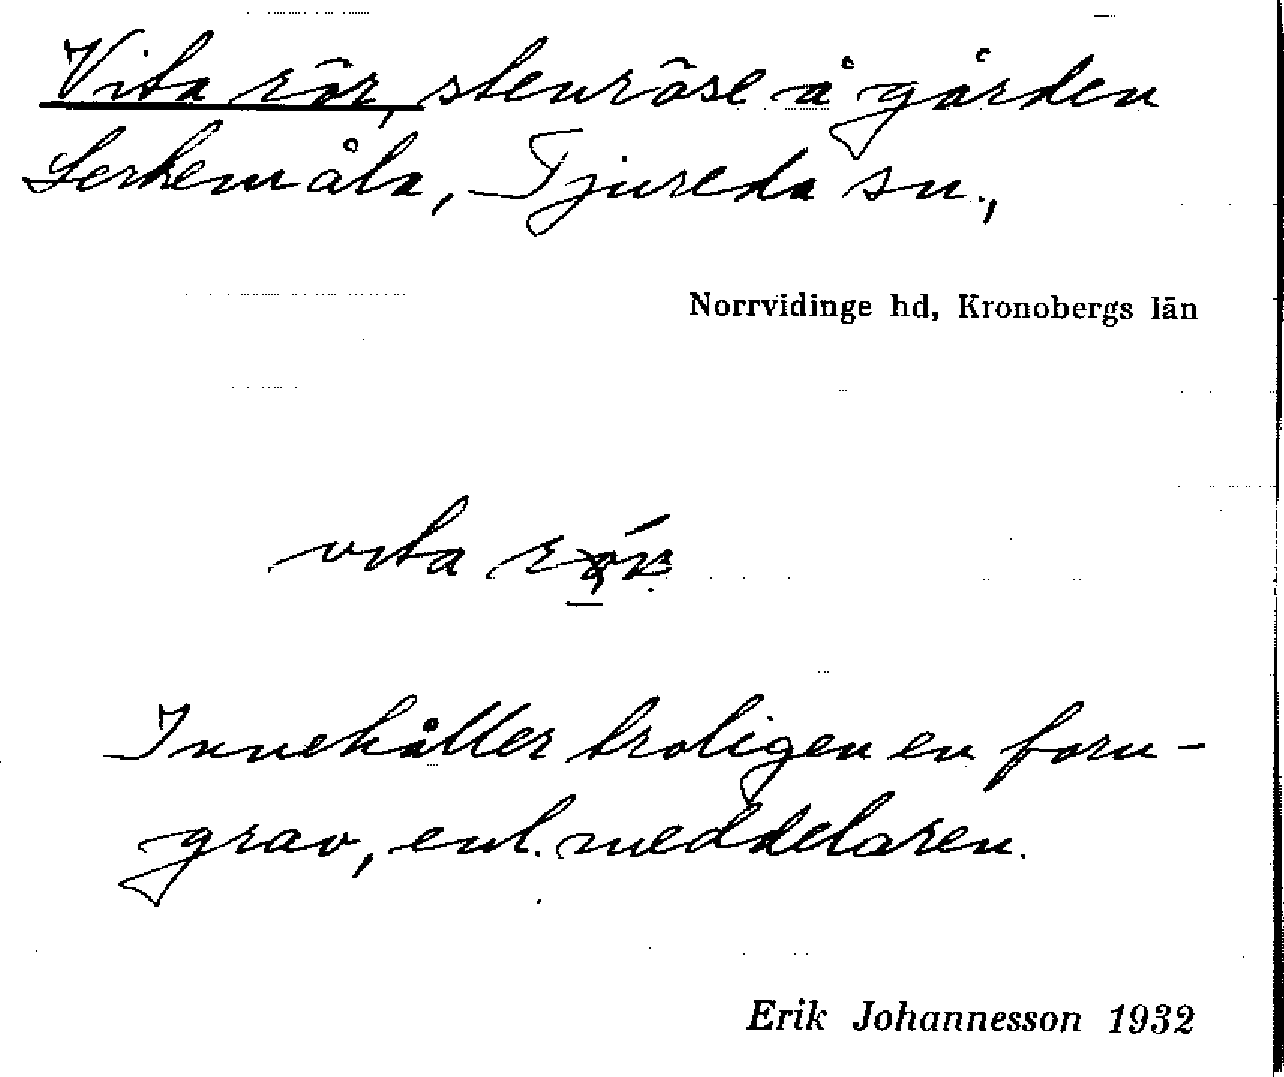 Vita rör, stenröse å gården
Lerkemåla, Tjureda sn.,
Norrvidinge hd, Kronobergs län
vita
Innehåller troligen en forn-
grav, enl. meddelaren.
Erik Johannesson 1932